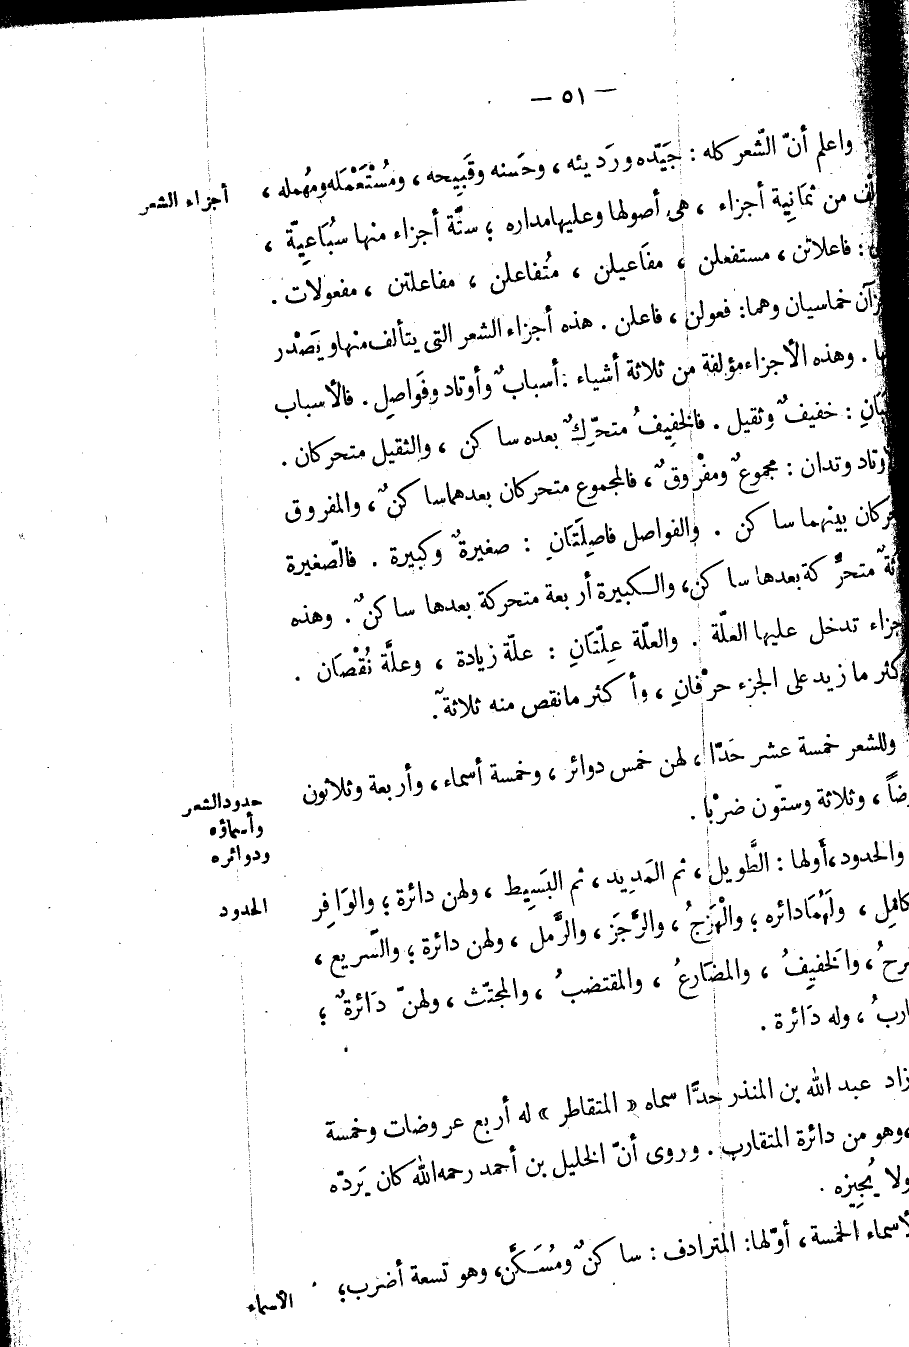 — ٥١ —
واعلم أنّ الشّعر كله : جَيّده ورَديئه ، وحَسنه وقَبِيحه ، ومُسْتَعْمَله ومُهمله ،
أجزاء الشعر
من ثمَانِية أجزاء ، هي أصولها وعليها مداره ؛ ستّة أجزاء منها سُبَاعِيّة ،
: فاعلاتن ، مستفعلن ، مفَاعيلن ، مُتفاعلن ، مفاعلتن ، مفعولات .
خماسيان وهما : فعولن ، فاعلن . هذه أجزاء الشعر التي يتألف منها ويَصْدر
. وهذه الأجزاء مؤلفة من ثلاثة أشياء : أسبابٌ وأوتاد وفَواصِل . فالأسباب
: خفيفٌ وثقيل . فالخفِيفُ متحرّكٌ بعده ساكن ، والثقيل متحركان .
وتدان : مجموعٌ ومفْروقٌ ، فالمجموع متحركان بعدهما ساكنٌ ، والمفروق
بينهما ساكن . والفواصل فاصِلَتَانِ : صغيرةٌ وكبيرة . فالصّغيرة
متحرِّكة بعدها ساكن ، والكبيرة أربعة متحركة بعدها ساكنٌ . وهذه
تدخل عليها العلّة . والعلّة عِلّتَانِ : علّة زيادة ، وعلَّة نُقْصَان .
ما زيد على الجزء حرْفانِ ، وأكثر ما نقص منه ثلاثةٌ .
وللشعر خمسة عشر حَدًّا ، لهن خمس دوائر ، وخمسة أسماء ، وأربعة وثلاثون
حدود الشعر
وأسماؤه
ودوائره
، وثلاثة وستّون ضربًا .
والحدود ، أولها : الطَّويل ، ثم المَديد ، ثم البَسِيط ، ولهن دائرة ؛ والوَافِر
الحدود
، ولَهُمَا دائره ؛ والْهَزَجُ ، والرَّجَز ، والرَّمل ، ولهن دائرة ؛ والسّريع ،
، والخفيِفُ ، والمضَارِعُ ، والمقتضبُ ، والمجتثّ ، ولهنّ دَائرةٌ ؛
، وله دَائرة .
زاد عبد الله بن المنذر حدًّا سماه « المتقاطر » له أربع عروضات وخمسة
، وهو من دائرة المتقارب . وروى أنّ الخليل بن أحمد رحمه الله كان يَردّه
ولا يُجِيزه .
الخمسة ، أوّلها : المترادف : ساكنٌ ومُسَكَّن ، وهو تسعة أضرب ؛
الأسماء